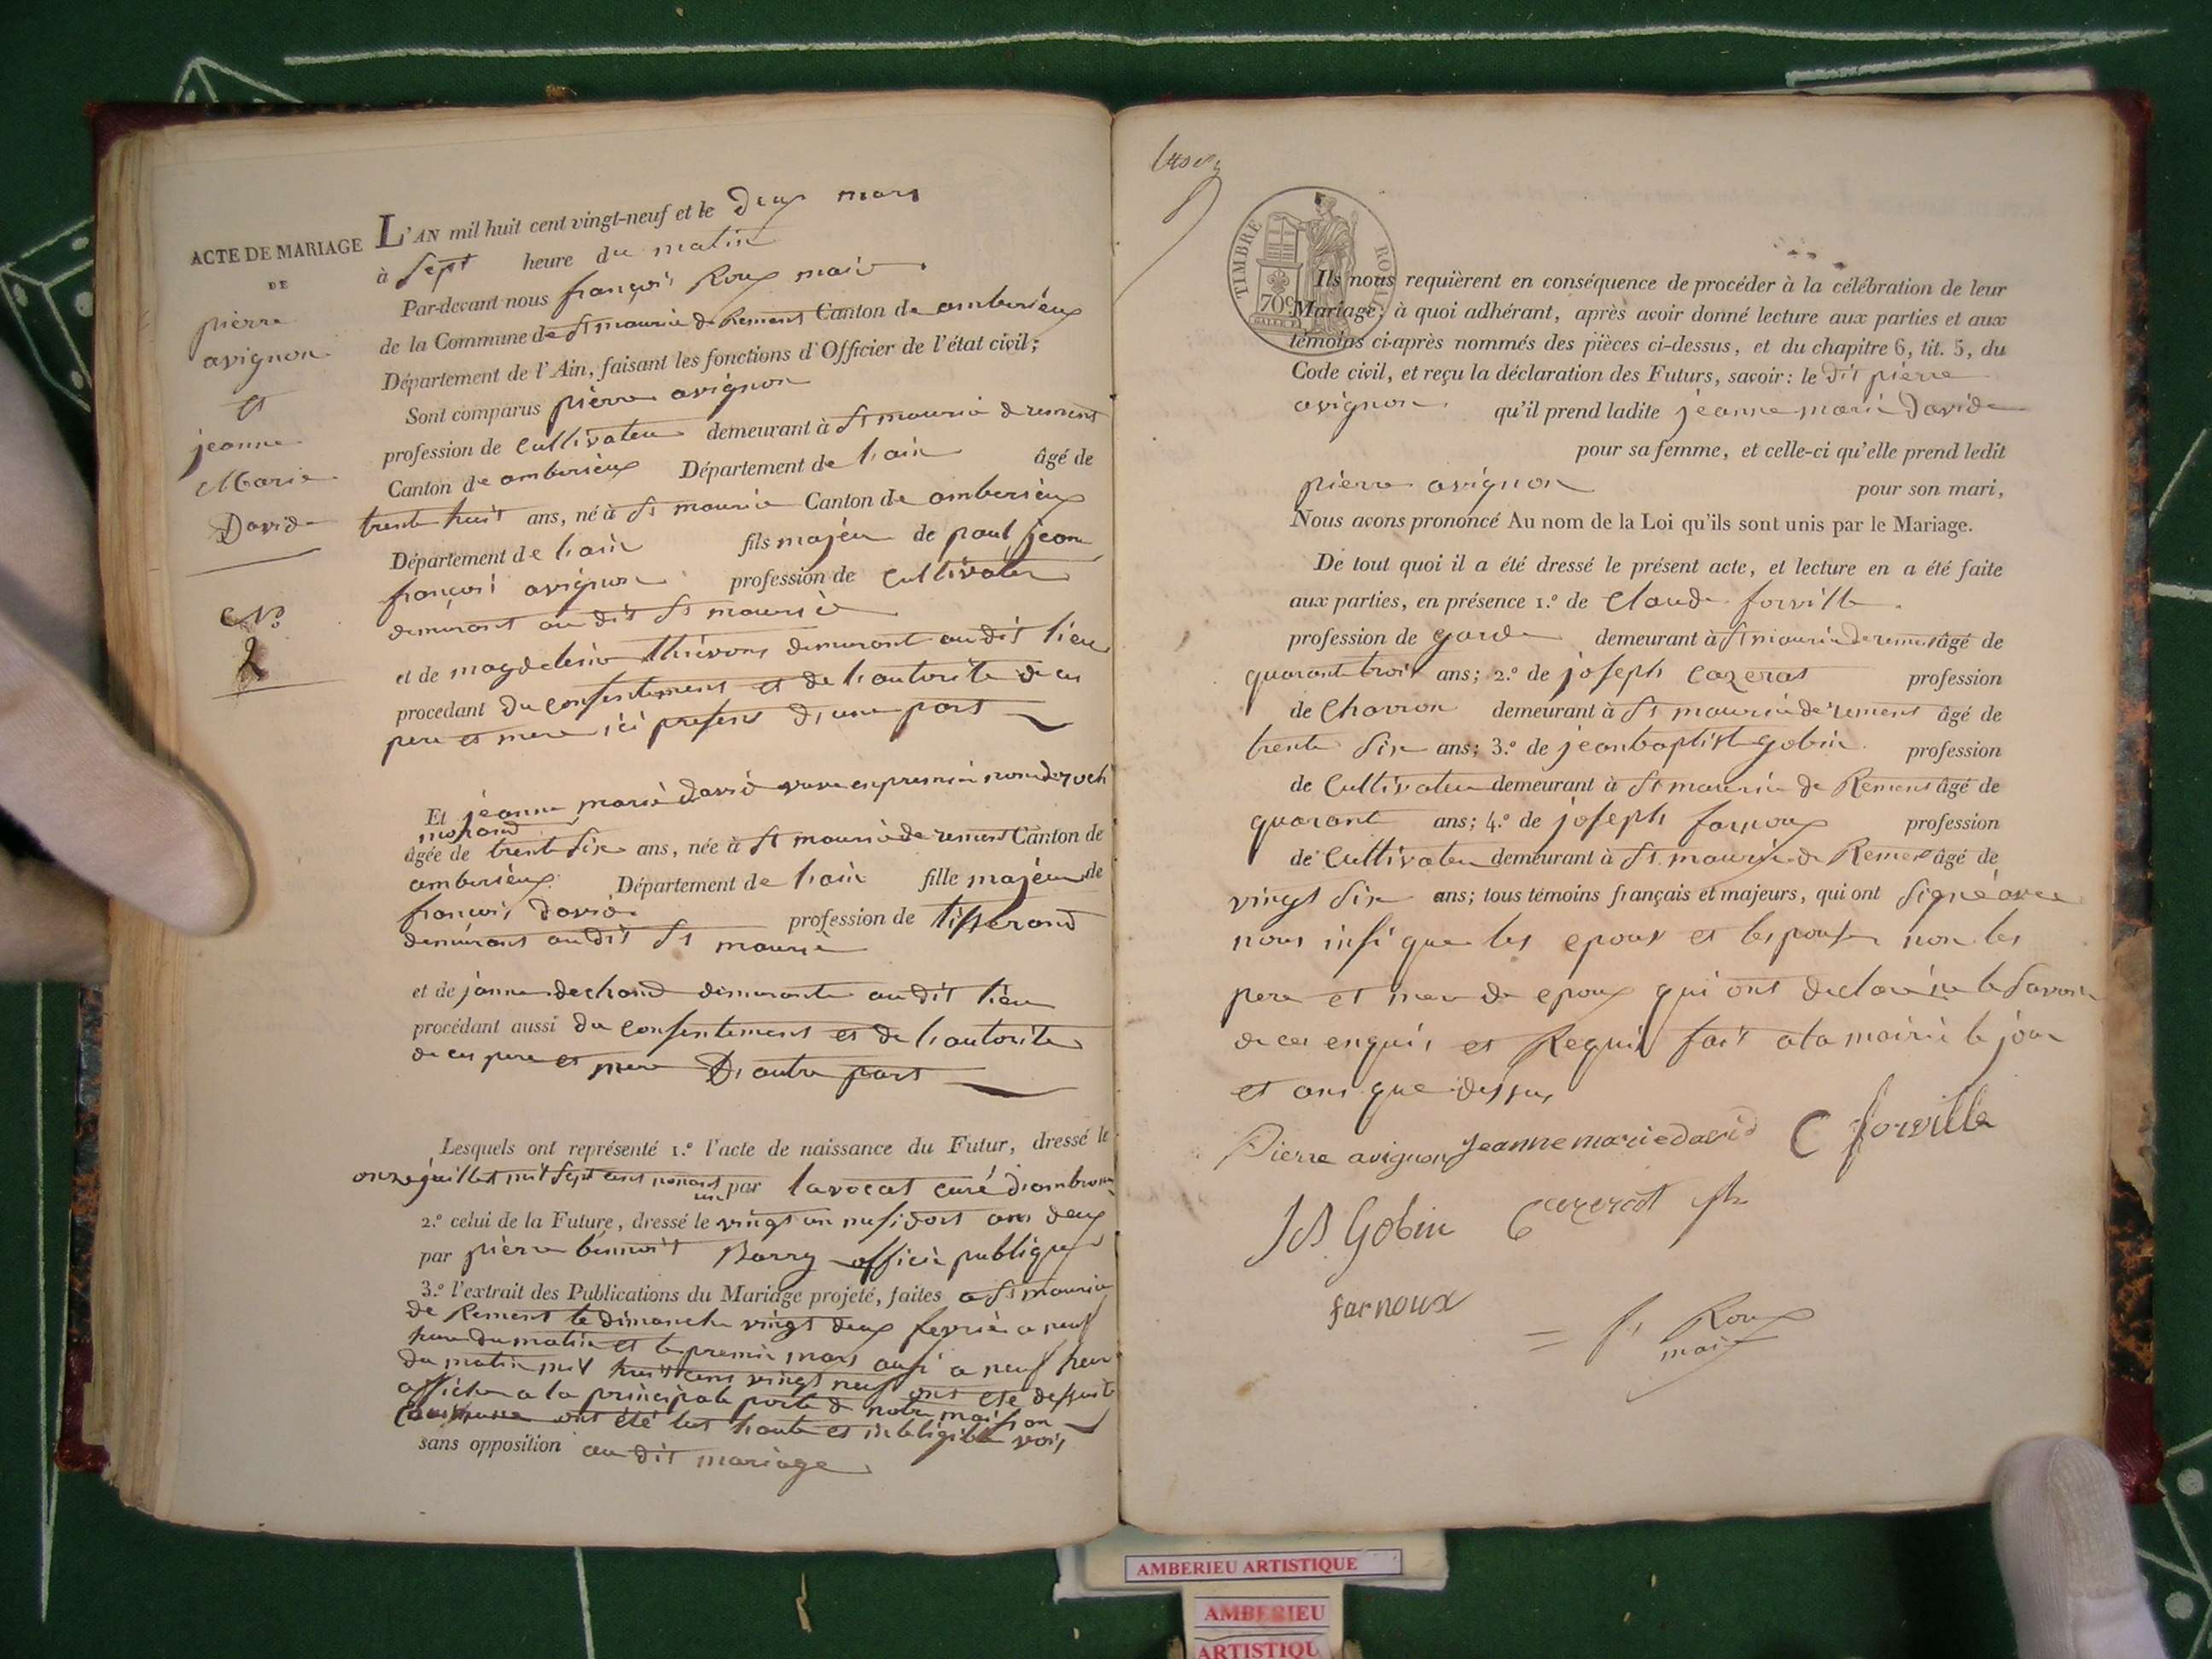 ACTE DE MARIAGE
DE
pierre
avignon
et
jeanne
Marie
David
N.o
2
L'AN mil huit cent vingt-neuf et le deux mars
à sept heure du matin
Par-devant nous françois Roux maire
de la Commune de St maurice de Remens Canton de amberieux
Département de l'Ain, faisant les fonctions d'Officier de l'état civil;
Sont comparus pierre avignon
profession de Cultivateur demeurant à St maurice de remens
Canton de amberieux Département de l'ain âgé de
trente huit ans, né à St maurice Canton de amberieux
Département de l'ain fils majeur de paul jean
françois avignon profession de Cultivateur
demurant au dit St maurice
et de magdeleine thievon demurant au dit lieu
procedant du consentement et de l'autorite de ces
pere et mere ici presens d'une part
Et jeanne marie david veuve en premier de roch
morand
âgée de trente six ans, née à St maurice de remens Canton de
amberieux Département de l'ain fille majeur de
françois david profession de tisserand
demurant au dit St maurice
et de janne dechand demurante au dit lieu
procédant aussi du consentement et de l'autorite
de ces pere et mere D'autre part
Lesquels ont représenté 1.o l'acte de naissance du Futur, dressé le
onze juillet mil sept cent nonant
un par lavocat curé d'ambronay
2.o celui de la Future, dressé le vingt un ans deux
par pierre bennoit Barry officié publique
3.o l'extrait des Publications du Mariage projeté, faites a St maurice
de Remens le dimanche vingt deux fevrié a neuf
heure du matin et le premier mars ausi a neuf heur
du matin mil huit cens vingt neuf ont ete de suite
affiche a la principale porte de notre maison
ont été lus haute et inteligible voix
sans opposition au dit mariage
TIMBRE ROYAL
70c
Ils nous requièrent en conséquence de procéder à la célébration de leur
Mariage; à quoi adhérant, après avoir donné lecture aux parties et aux
témoins ci-après nommés des pièces ci-dessus, et du chapitre 6, tit. 5, du
Code civil, et reçu la déclaration des Futurs, savoir: le dit pierre
avignon qu'il prend ladite jeanne marie david
pour sa femme, et celle-ci qu'elle prend ledit
pierre avignon pour son mari,
Nous avons prononcé Au nom de la Loi qu'ils sont unis par le Mariage.
De tout quoi il a été dressé le présent acte, et lecture en a été faite
aux parties, en présence 1.o de Claude forville
profession de garde demeurant à St maurice de remens âgé de
quarante trois ans; 2.o de joseph Cazerat profession
de Charron demeurant à St maurice de remens âgé de
trente six ans; 3.o de jean baptist gobin profession
de Cultivateur demeurant à St maurice de Remens âgé de
quarant ans; 4.o de joseph farnoux profession
de Cultivateur demeurant à St maurice de Remens âgé de
vingt six ans; tous témoins français et majeurs, qui ont signé avec
nous insi que les epoux et les pouse non les
pere et mere de epoux qui ont declaré ne le savoir
de ces enquis et Requis fait a la mairie le jour
et ans que dessus
Pierre avignon Jeanne marie david C forville
JB Gobin Cazerat
farnoux
f. Roux
maire
AMBERIEU ARTISTIQUE
AMBERIEU
ARTISTIQU